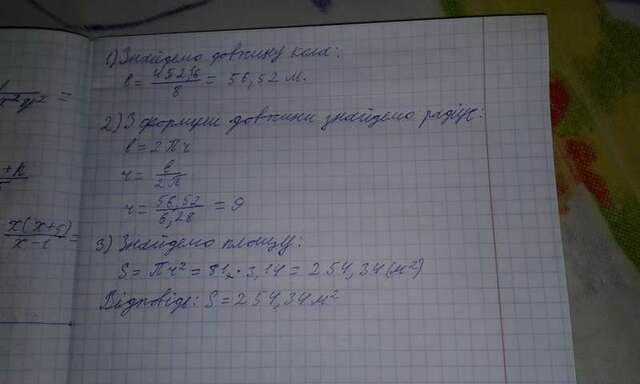 1) Знайдемо довжину кола:
ℓ = 452,16/8 = 56,52 м.
2) З формули довжини знайдемо радіус:
ℓ = 2Пr
r = ℓ/2П
r = 56,52/6,28 = 9
3) Знайдемо площу:
S = Пr² = 81 · 3,14 = 254,34 (м²)
Відповідь: S = 254,34 м²
x(x+5)/x-5 =